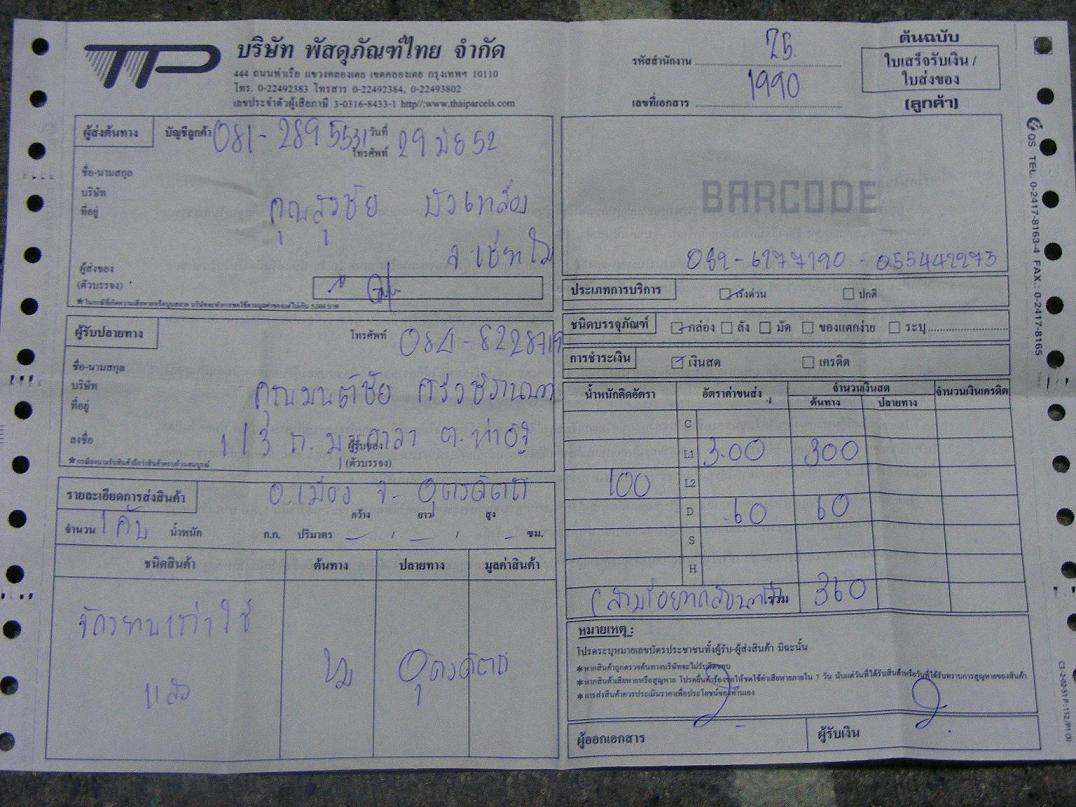 TTP
บริษัท พัสดุภัณฑ์ไทย จำกัด
444 ถนนท่าเรือ แขวงคลองเตย เขตคลองเตย กรุงเทพฯ 10110
โทร. 0-22492383 โทรสาร 0-22492384, 0-22493802
เลขประจำตัวผู้เสียภาษี 3-0316-8433-1 http//:www.thaiparcels.com
รหัสสำนักงาน 75
เลขที่เอกสาร 1990
ต้นฉบับ
ใบเสร็จรับเงิน /
ใบส่งของ
(ลูกค้า)
ผู้ส่งต้นทาง
บัญชีลูกค้า 081-2895531 วันที่
โทรศัพท์ 29 มิย 52
ชื่อ-นามสกุล
บริษัท
ที่อยู่
คุณสุรชัย
ผู้ส่งของ
(ตัวบรรจง)
BARCODE
082-6177190 - 055442273
ประเภทการบริการ เร่งด่วน ปกติ
ชนิดบรรจุภัณฑ์ กล่อง ลัง มัด ของแตกง่าย ระบุ
การชำระเงิน เงินสด เครดิต
ผู้รับปลายทาง
โทรศัพท์ 084-8228719
ชื่อ-นามสกุล
บริษัท
ที่อยู่
คุณมนต์ชัย
ลงชื่อ
ผู้รับของ
(ตัวบรรจง)
อ.เมือง จ. อุตรดิตถ์
รายละเอียดการส่งสินค้า
กว้าง ยาว สูง
จำนวน 1 คัน น้ำหนัก ก.ก. ปริมาตร / / ซม.
ชนิดสินค้า ต้นทาง ปลายทาง มูลค่าสินค้า
จักรยานเก่าใช้
แล้ว
ชม อุตรดิตถ์
น้ำหนักคิดอัตรา อัตราค่าขนส่ง จำนวนเงินสด จำนวนเงินเครดิต
ต้นทาง ปลายทาง
C
L1 300 300
100 L2
D 60 60
S
H
รวม 360
หมายเหตุ :
โปรดระบุหมายเลขบัตรประชาชนทั้งผู้รับ-ผู้ส่งสินค้า มิฉะนั้น
*หากสินค้าถูกตรวจค้นทางบริษัทจะไม่รับผิดชอบ
*การส่งสินค้าควรประเมินราคาเพื่อประโยชน์ของท่านเอง
ผู้ออกเอกสาร ผู้รับเงิน
QS TEL. 0-2417-8163-4 FAX.: 0-2417-8165